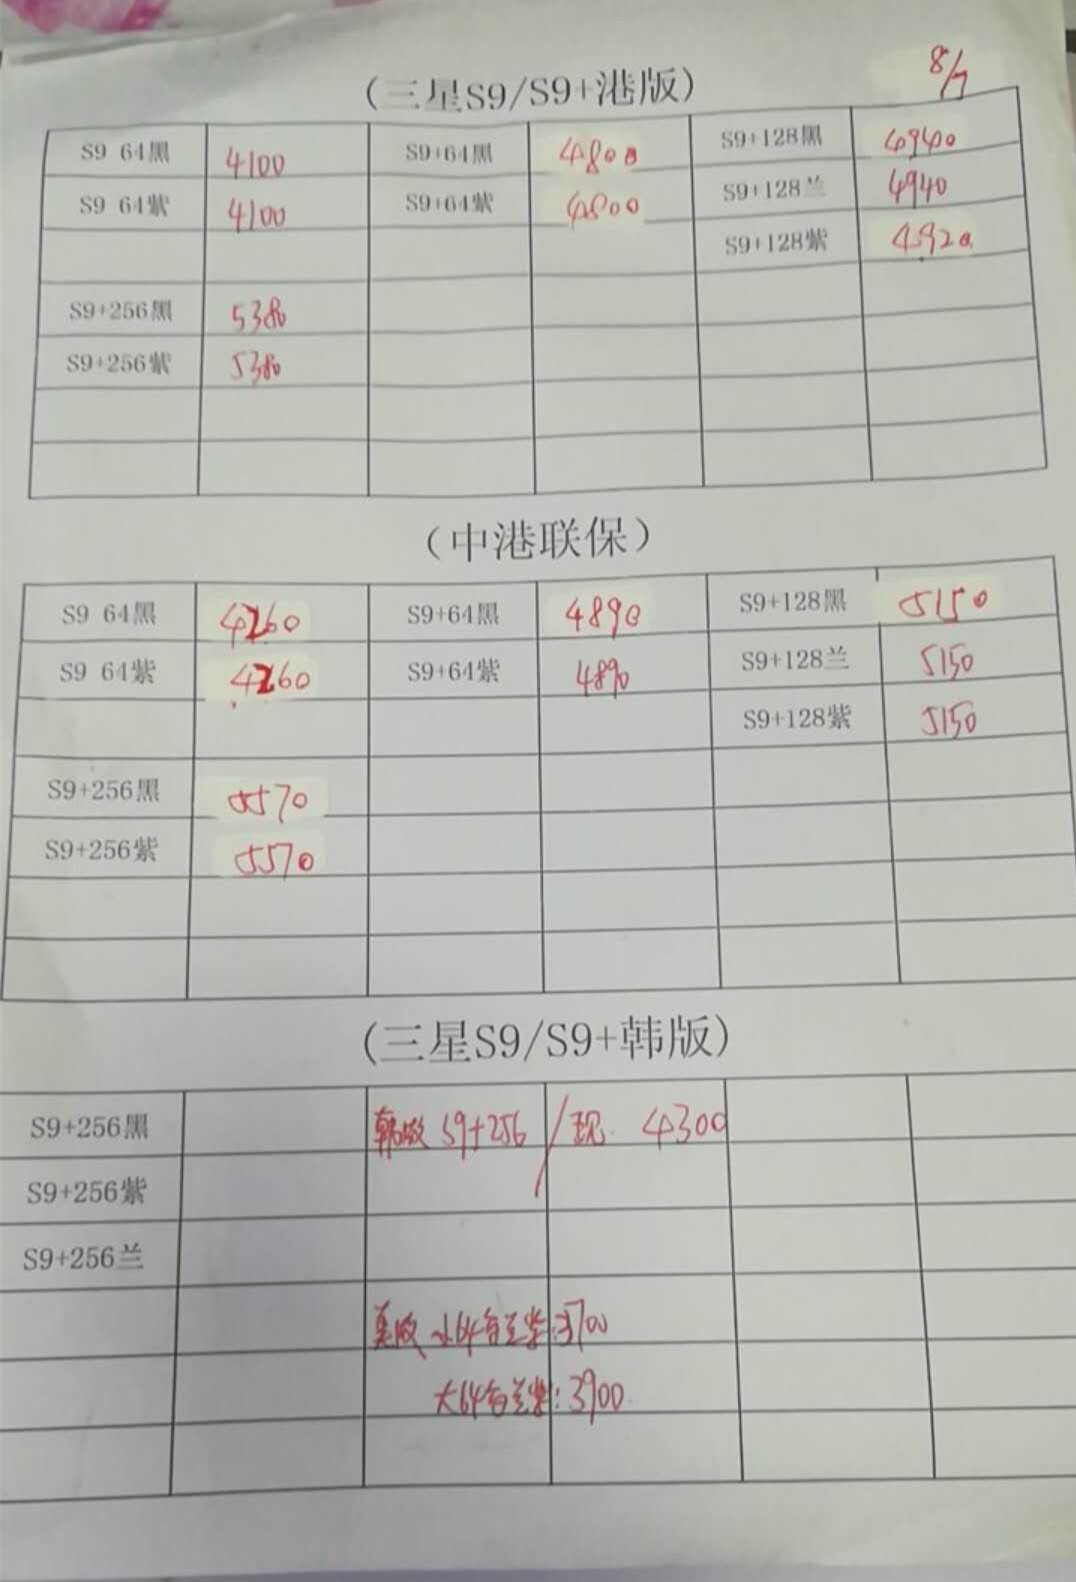 (三星S9/S9+港版) 8/7
S9 64黑 4100 S9+64黑 4800 S9+128黑 4940
S9 64紫 4100 S9+64紫 4800 S9+128兰 4940
S9+128紫 4920
S9+256黑 5380
S9+256紫 5380
（中港联保）
S9 64黑 4260 S9+64黑 4890 S9+128黑 5150
S9 64紫 4260 S9+64紫 4890 S9+128兰 5150
S9+128紫 5150
S9+256黑 5570
S9+256紫 5570
(三星S9/S9+韩版)
S9+256黑 韩版 S9+256 / 现. 4300
S9+256紫
S9+256兰
美版 小64 兰紫:3700
大64 兰紫:3900